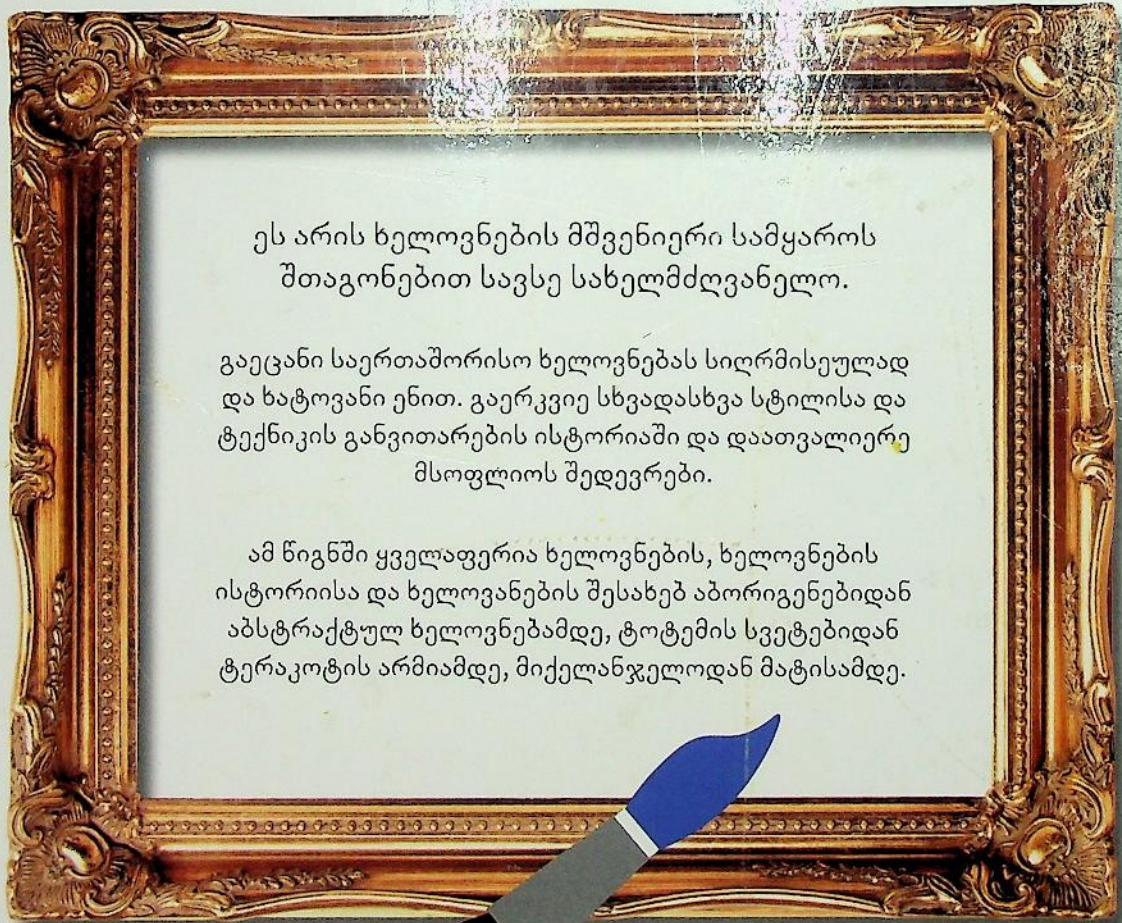 ეს არის ხელოვნების მშვენიერი სამყაროს
შთაგონებით სავსე სახელმძღვანელო.
გაეცანი საერთაშორისო ხელოვნებას სიღრმისეულად
და ხატოვანი ენით. გაერკვიე სხვადასხვა სტილისა და
ტექნიკის განვითარების ისტორიაში და დაათვალიერე
მსოფლიოს შედევრები.
ამ წიგნში ყველაფერია ხელოვნების, ხელოვნების
ისტორიისა და ხელოვანების შესახებ აბორიგენებიდან
აბსტრაქტულ ხელოვნებამდე, ტოტემის სვეტებიდან
ტერაკოტის არმიამდე, მიქელანჯელოდან მატისამდე.